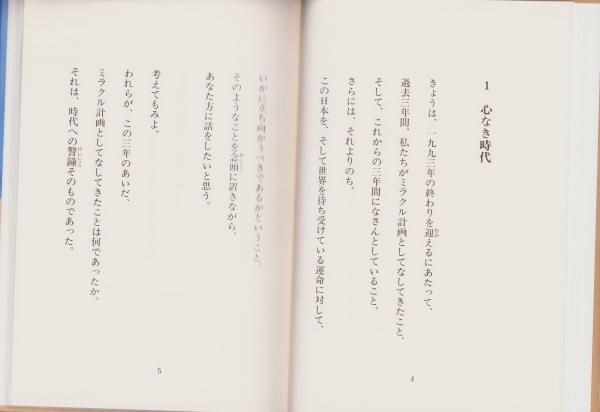 1 心なき時代
きょうは、一九九三年の終わりを迎えるにあたって、
過去三年間、私たちがミラクル計画としてなしてきたこと、
そして、これからの三年間になさんとしていること、
さらには、それよりのち、
この日本を、そして世界を待ち受けている運命に対して、
4
いかに立ち向かうべきであるかということ、
そのようなことを念頭に置きながら、
あなた方に話をしたいと思う。
考えてもみよ。
われらが、この三年のあいだ、
ミラクル計画としてなしてきたことは何であったか。
それは、時代への警鐘そのものであった。
5